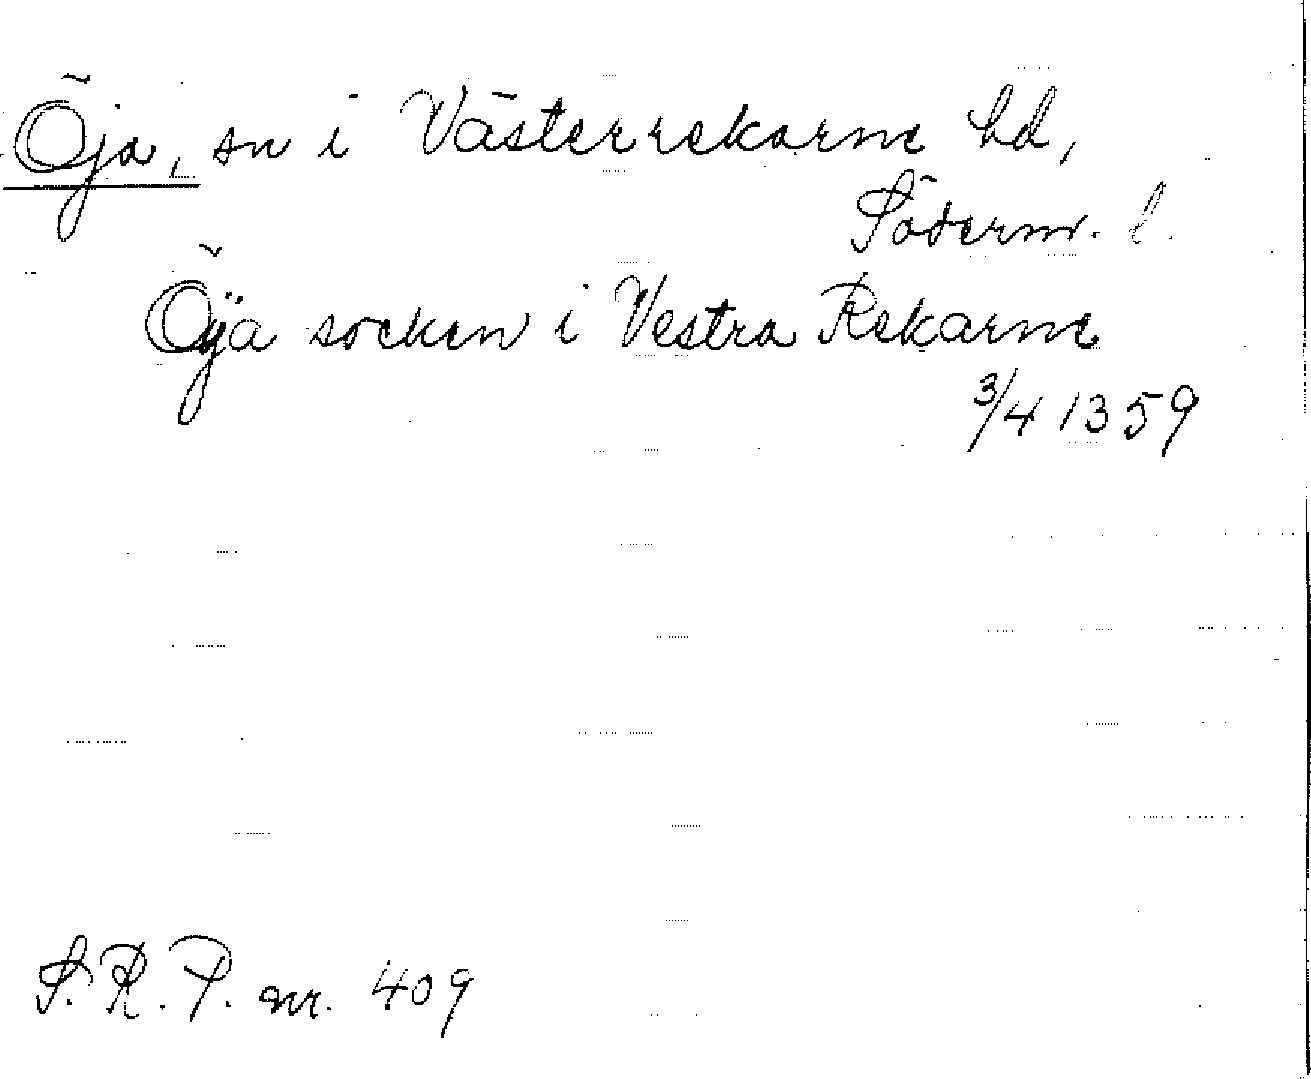 Öja, sn i Västerrekarne hd,
Söderm. l.
Öÿa socken i Vestra Rekarne
3/4 1359
S.R.P. nr. 409